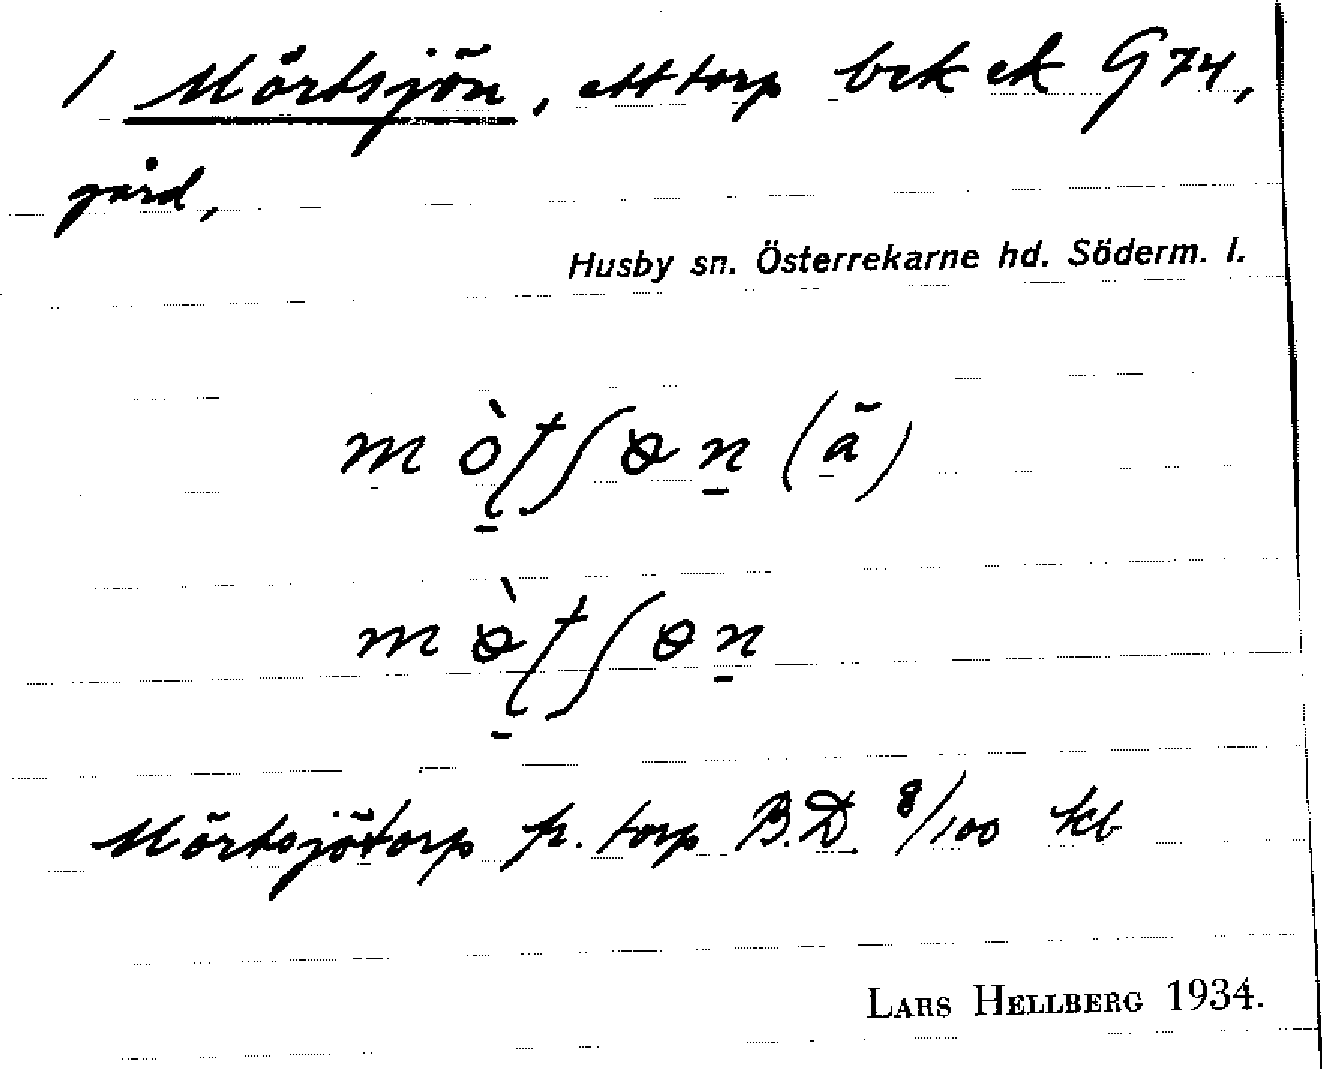 1 Mörtsjön, ett torp bek ek G 74,
gård,
Husby sn. Österrekarne hd. Söderm. l.
Mörtsjötorp fr. torp B.D. 8/100 kb
LARS HELLBERG 1934.